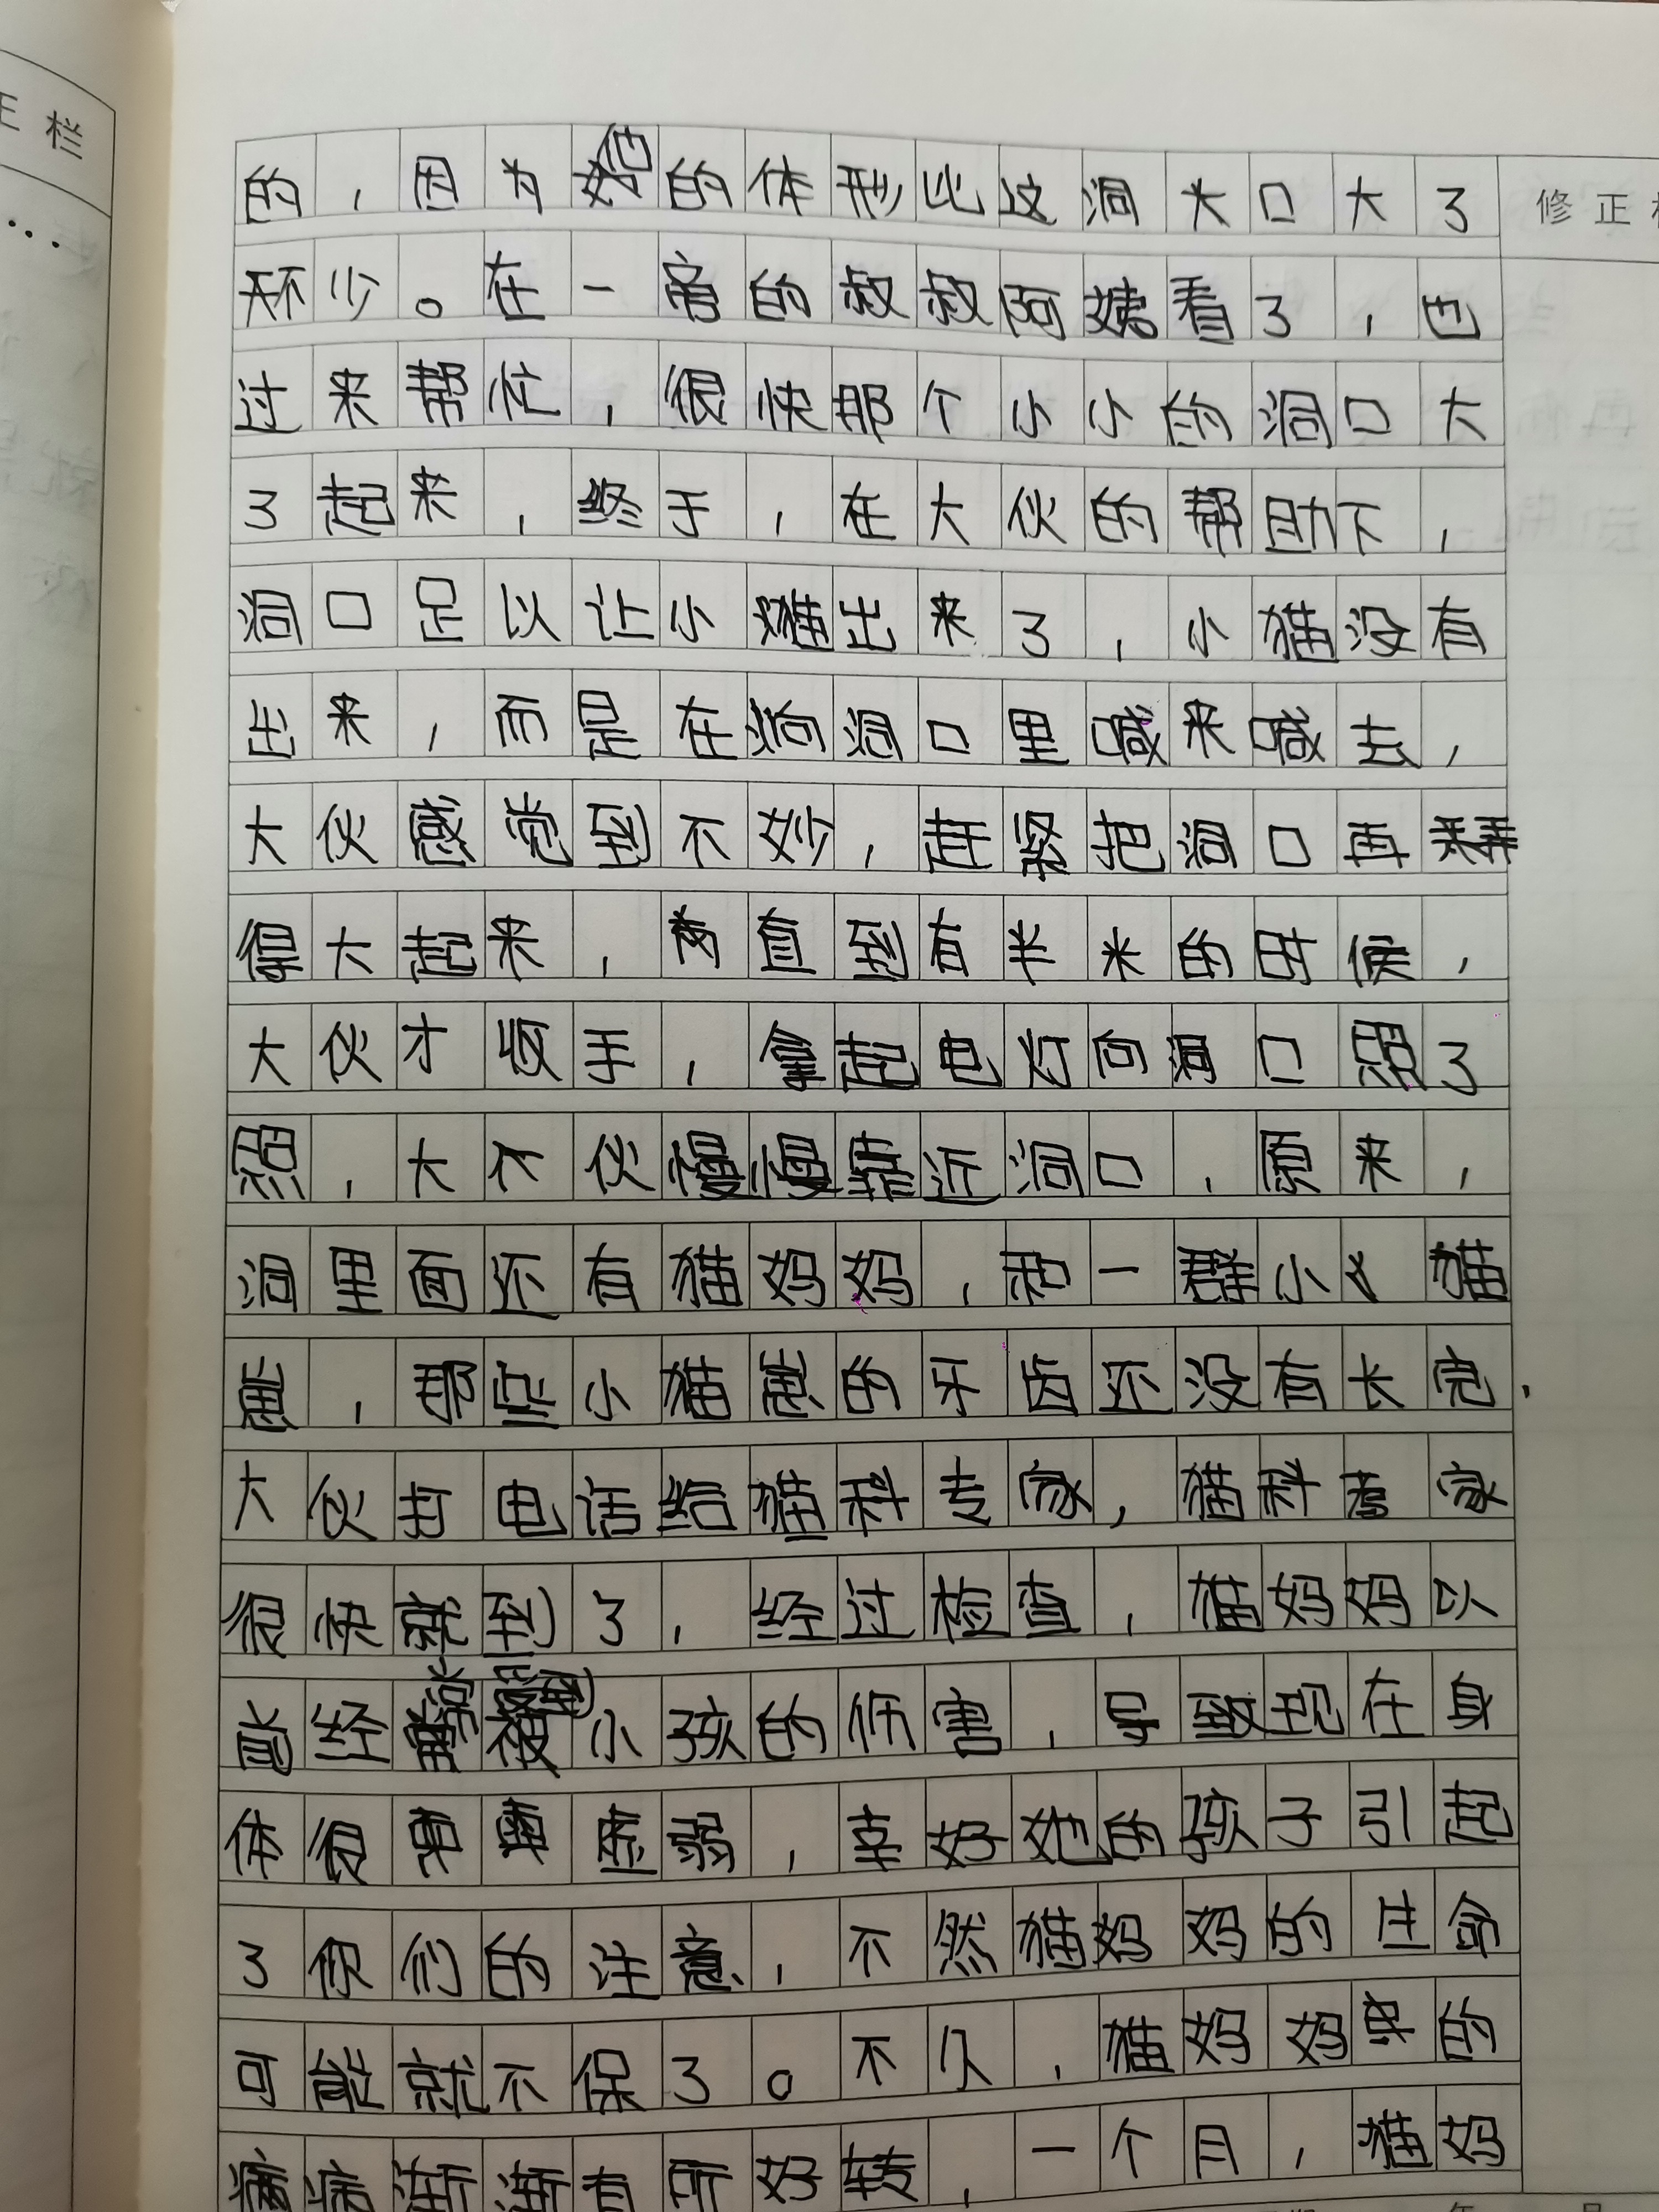 正栏
的，因为他的体形比这洞大口大了
修正
不少。在一旁的叔叔阿姨看了，也
过来帮忙，很快那个小小的洞口大
了起来，终于，在大伙的帮助下，
洞口足以让小猫出来了，小猫没有
出来，而是在洞口里喊来喊去，
大伙感觉到不妙，赶紧把洞口再弄
得大起来，直到有半米的时候，
大伙才收手，拿起电灯向洞口照了
照，大伙慢慢靠近洞口，原来，
洞里面还有猫妈妈，和一群小猫
崽，那些小猫崽的牙齿还没有长完.
大伙打电话给猫科专家，猫科专家
很快就到了，经过检查，猫妈妈以
前经常受到小孩的伤害，导致现在身
体很虚弱，幸好她的孩子引起
了你们的注意，不然猫妈妈的生命
可能就不保了。不久，猫妈妈的
病渐渐有所好转，一个月，猫妈